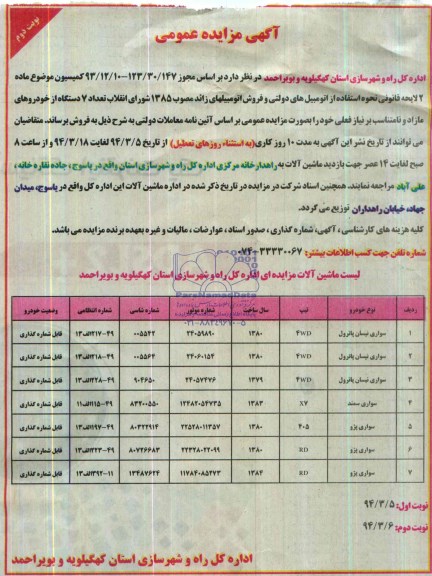 نوبت دوم
آگهی مزایده عمومی
اداره کل راه و شهرسازی استان کهگیلویه و بویراحمد در نظر دارد بر اساس مجوز ۱۲۳/۳۰/۱۴۷-۹۳/۱۲/۱۰ کمیسیون موضوع ماده
۲ لایحه قانونی نحوه استفاده از اتومبیل های دولتی و فروش اتومبیلهای زائد مصوب 1385 شورای انقلاب تعداد ۷ دستگاه از خودروهای
مازاد و نامتناسب بر نیاز فعلی خود را بصورت مزایده عمومی بر اساس آئین نامه معاملات دولتی به شرح ذیل به فروش برساند. متقاضیان
می توانند از تاریخ نشر این آگهی به مدت ۱۰ روز کاری (به استثناء روزهای تعطیل) از تاریخ ۹۴/۳/۵ لغایت ۹۴/۳/۱۸ و از ساعت ۸
صبح لغایت ۱۴ عصر جهت بازدید ماشین آلات به راهدارخانه مرکزی اداره کل راه و شهرسازی استان واقع در یاسوج، جاده نقاره خانه،
علی آباد مراجعه نمایند. همچنین اسناد شرکت در مزایده در تاریخ ذکر شده در اداره ماشین آلات این اداره کل واقع در یاسوج، میدان
جهاد، خیابان راهداران توزیع می گردد.
کلیه هزینه های کارشناسی، آگهی، شماره گذاری، صدور اسناد، عوارضات، مالیات و غیره بعهده برنده مزایده می باشد.
شماره تلفن جهت کسب اطلاعات بیشتر: ۳۳۳۳۰۰۶۷-۰۷۴
لیست ماشین آلات مزایده ای اداره کل راه و شهرسازی استان کهگیلویه و بویراحمد
ParsNamadData
۰۲۱-۸۸۳۴۹۶۷۰-۵
ردیف نوع خودرو تیپ سال ساخت شماره موتور شماره شاسی شماره انتظامی وضعیت خودرو
۱ سواری نیسان پاترول ۴WD ۱۳۸۰ ۲۴۰۵۹۸۹۰ ۰۰۵۵۴۲ ۴۹-۲۱۷الف۱۳ قابل شماره گذاری
۲ سواری نیسان پاترول ۴WD ۱۳۸۰ ۲۴۰۶۰۱۵۴ ۰۰۵۵۶۴ ۴۹-۲۱۸الف۱۳ قابل شماره گذاری
۳ سواری نیسان پاترول ۴WD ۱۳۷۹ ۲۴۰۵۷۴۷۶ ۹۰۴۶۵۰ ۴۹-۲۲۸الف۱۳ قابل شماره گذاری
۴ سواری سمند X۷ ۱۳۸۳ ۱۲۴۸۲۰۵۴۷۳۵ ۸۳۲۰۰۵۵۰ ۴۹-۱۱۵الف۱۱ قابل شماره گذاری
۵ سواری پژو ۴۰۵ ۱۳۸۰ ۲۲۵۲۸۰۱۱۳۵۷ ۸۰۳۲۲۹۱۴ ۴۹-۱۹۷الف۱۳ قابل شماره گذاری
۶ سواری پژو RD ۱۳۸۰ ۲۲۳۲۸۰۲۲۰۹۹ ۸۰۷۲۶۶۸۳ ۴۹-۲۲۳الف۱۳ قابل شماره گذاری
۷ سواری پژو RD ۱۳۸۴ ۱۱۷۸۴۰۸۵۴۷۳ ۱۳۴۸۷۶۲۴ ۱۱-۳۹۲الف۱۳ قابل شماره گذاری
نوبت اول: ۹۴/۳/۵
نوبت دوم: ۹۴/۳/۶
اداره کل راه و شهرسازی استان کهگیلویه و بویراحمد